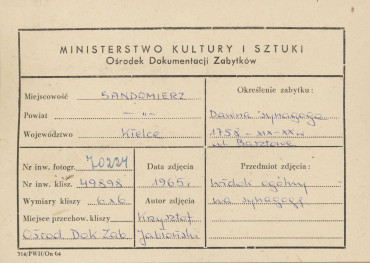 MINISTERSTWO KULTURY I SZTUKI
Ośrodek Dokumentacji Zabytków
Miejscowość SANDOMIERZ
Powiat — „ —
Województwo Kielce
Określenie zabytku:
Dawna synagoga
1758 - XIX-XX w
ul. Basztowa
Nr inw. fotogr. 70227
Nr inw. klisz. 49898
Wymiary kliszy 6x6
Miejsce przechow. kliszy
Ośrod Dok Zab.
Data zdjęcia
1965 r.
Autor zdjęcia
Krzysztof
Jabłoński
Przedmiot zdjęcia:
widok ogólny
na synagogę
314/PWH/On 64